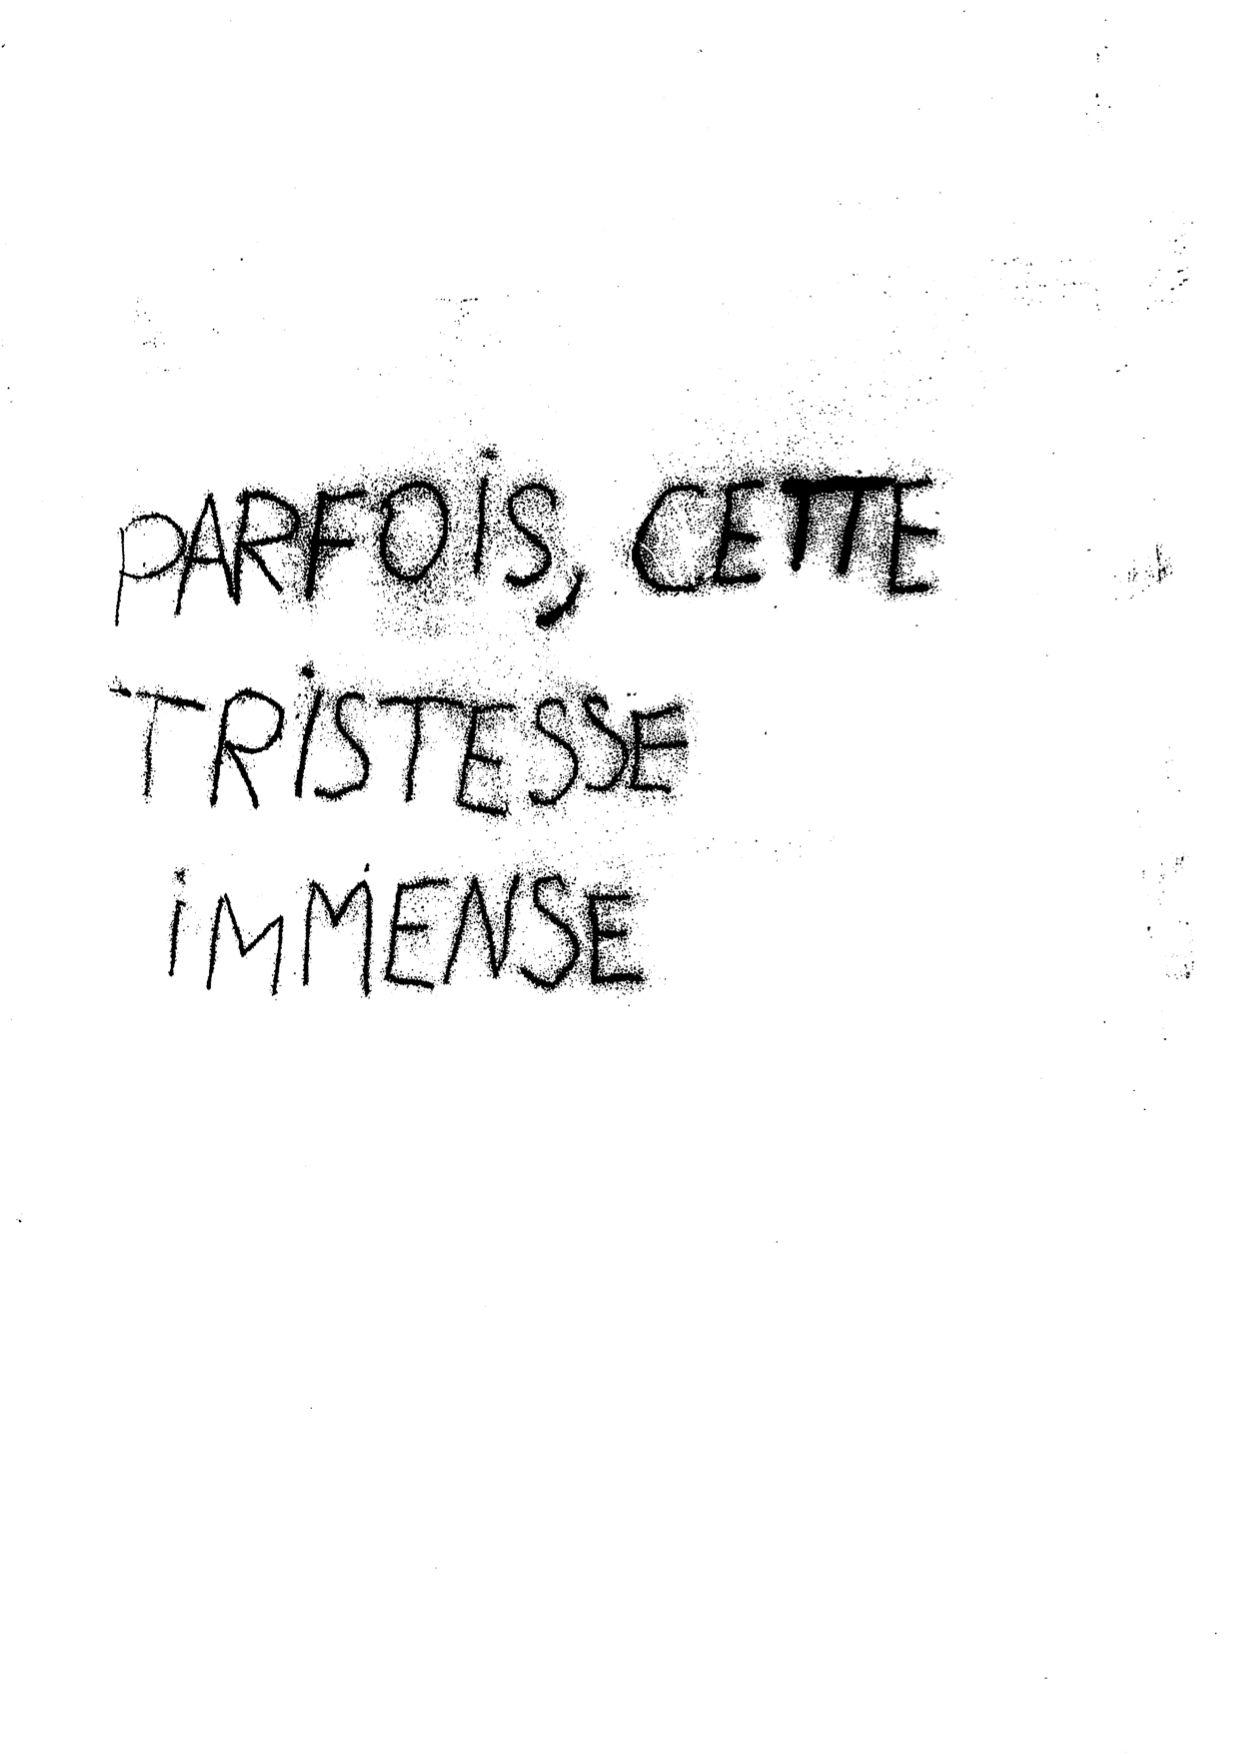 PARFOiS, CETTE
TRiSTESSE
iMMENSE